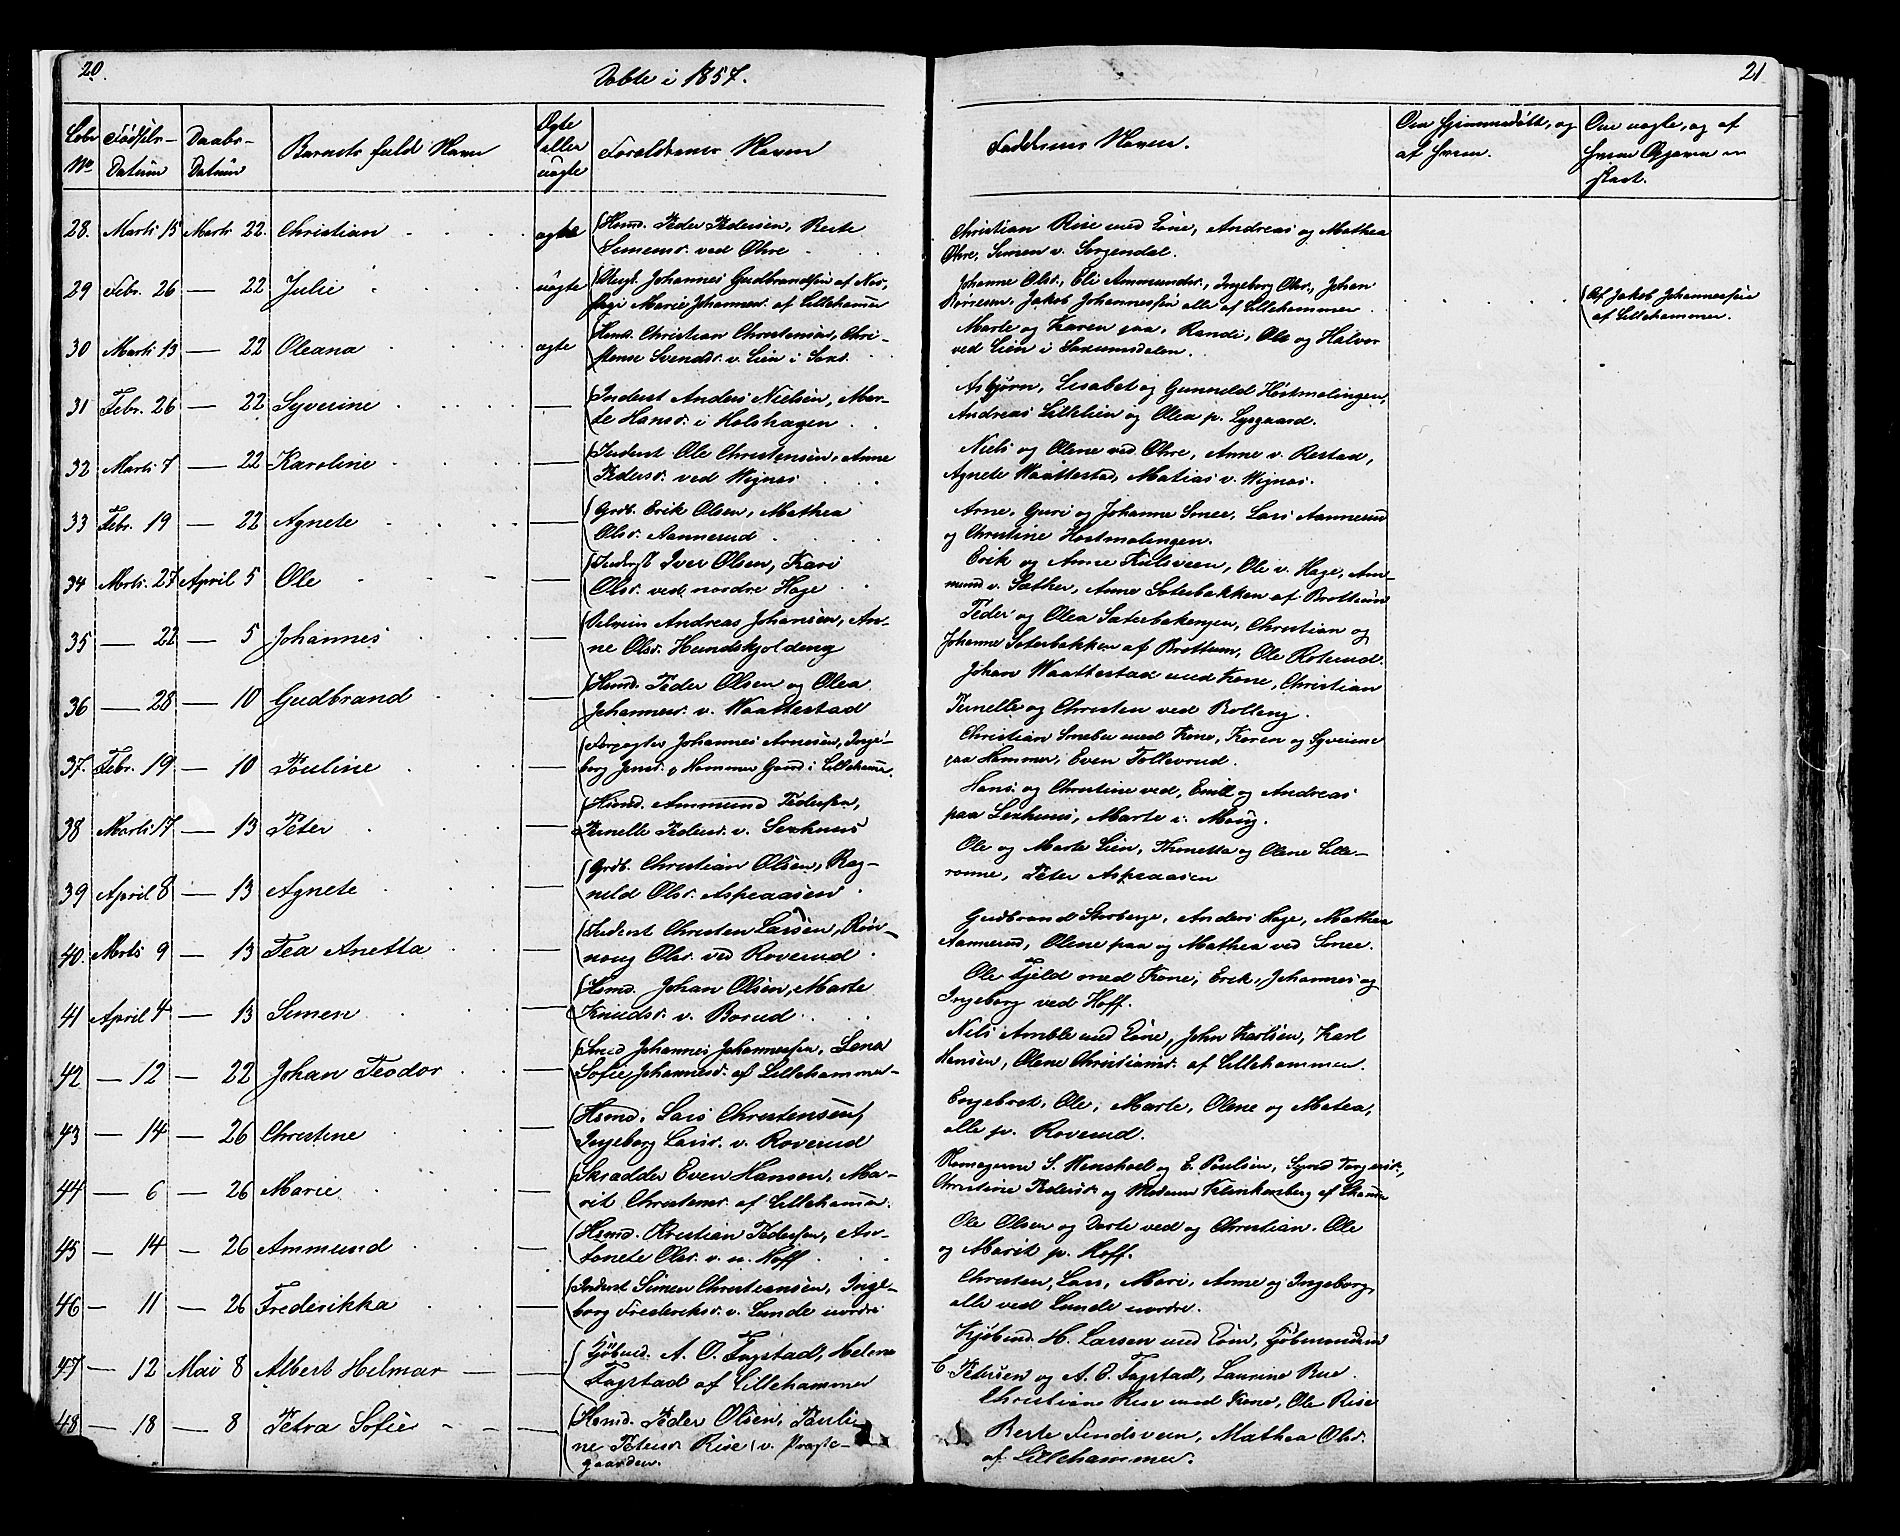 20.
Døbte i 1857.
Løbe No
Fødsels-Datum
Daabs-Datum
Barnets fulde Navn
Ægte eller uægte
Forældrenes Navne
28. Marts 15 Marts 22. Christian ægte Husmd. Peder Pedersen, Berte
Simensd. ved Øhre
29 Febr. 26 — 22 Julie uægte Ungk. Johannes Gudbrandsen af
Marie Johannesd. af Lillehammer
30 Marts 13 — 22 Oleana ægte Husmd. Christian Christensen, Chri-
stense Svendsd. v. Lien i Saxs.
31 Febr. 26 — 22 Syverine — Inderst Anders Nielsen, Mar-
te Hansd. i Holshagen
32 Marts 7 — 22 Karoline — Inderst Ole Christensen, Anne
Pedersd. ved Wignes
33 Febr. 19 — 22 Agnete — Grdb. Erik Olsen, Mathea
Olsd. Aannerud
34 Marts. 27 April 5 Ole — Inderst Iver Olsen, Kari
Olsd. ved nordre Hage
35 — 22 — 5 Johannes — Andreas Johansen, An-
ne Olsd. Hundskjoldeng
36 — 28 — 10 Gudbrand — Husmd. Peder Olsen og Olea
Johannesd. v. Waattestad
37. Febr. 19 — 10 Pouline — Johannes Arnesen, Inge-
borg Jensd. p Hammer Gaard i Lillehammer.
38 Marts 17 — 13 Peter — Husmd. Ammund Pedersen,
Pernelle Pedersd. v. Sexhuus
39 April 8 — 13 Agnete — Grdb. Christian Olsen, Rag-
nild Olsd. Aspeaasen
40. Marts 9 — 13 Tea Anetta — Inderst Christen Larsen, Røn-
noug Olsd. ved Roverud
41 April 4 — 13 Simen — Husmd. Johan Olsen, Marte
Knudsd. v. Borud
42 — 12 — 22 Johan Teodor — Smed Johannes Johannessen, Lena
Sofie Johannesd. af Lillehammer
43 — 14 — 26 Christine — Husmd. Lars Christensen,
Ingeborg Larsd. v. Roverud
44 — 6 — 26 Marie — Skrædder Even Hansen, Ma-
rit Christensd. af Lillehammer.
45 — 14 — 26 Ammund — Husmd. Kristian Pedersen, An-
tonete Olsd. v. n. Hoff
46 — 11 — 26 Frederikka — Inderst Simen Christiansen, Inge-
borg Frederiksd. v. Lunde nordre
47 — 12 Mai 8 Albert Helmar — Kjøbmd. A. O. Fagstad, Helene
Fagstad af Lillehammer
48 — 18 — 8 Petra Sofie — Husmd. Peder Olsen, Pauli-
ne Petersd. Rise v. Præste-
gaarden.
21
Faddernes Navne.
Om hjemmedøbt, og
af hvem.
Om uægte, og af
hvem Opgaven er
skeet.
Christian Rise med Kone, Andreas og Mathea
Øhre, Simen v. Sorgendal.
Johanne Olsd., Eli Ammundsd., Ingeborg Olsd., Johan
Jakob Johannessen alle af Lillehammer
Af Jakob Johannessen
af Lillehammer.
Marte og Karen paa, Randi, Ole og Halvor
ved Lien i Saxumsdalen.
Asbjørn, Lisabet og Gunnild Hostmælingen,
Andreas Lillelien og Olea p. Lysgaard.
Niels og Olene ved Øhre, Anne v. Restad,
Agnete Waattestad, Matias v. Wignes.
Arne, Guri og Johanne Smee, Lars Aannerud
og Christine Hostmælingen.
Erik og Anne Kulsveen, Ole v. Hage, Am-
mund v. Sæther, Anne Sæterbakken af Brøttum
Peder og Olea Sæterbakengen, Christian og
Johanne Sæterbakken af Brøttum, Ole Roterud.
Johan Waattestad med Kone, Christian
Pernelle og Christen ved Rolleng.
Christian med Kone, Karen og Syverine
paa Hammer, Even Tollevrud.
Hans og Christine ved, Emil og Andreas
paa Sexhuus, Marte i Moug.
Ole og Marte Lien, Thonetta og Olene Lille-
rønne, Peter Aspeaasen
Gudbrand Storberge, Anders Hage, Mathea
Aannerud, Olene paa og Mathea ved Smee.
Ole Fjeld med Kone, Erik, Johannes og
Ingeborg ved Hoff.
Niels Amble med Kone, John Karlsen, Karl
Hansen, Olene Christiansd. af Lillehammer.
Engebret, Ole, Marte, Olene og Matea,
alle p. Roverud.
S. Henschel og E. Poulsen,
Christine Pedersd. og Madame Klinkenberg af
Ole Olsen og Dorte ved og Christian. Ole
og Marit p. Hoff.
Christen, Lars, Mari, Anne og Ingeborg,
alle ved Lunde nordre.
Kjøbmd. H. Larsen med Kone, Kjøbmændene
C. Petersen og A. O. Fagstad, Laurine Bue.
Christian Rise med Kone, Ole Rise
Berte Lindsveen, Mathea Olsd.
af Lillehammer.